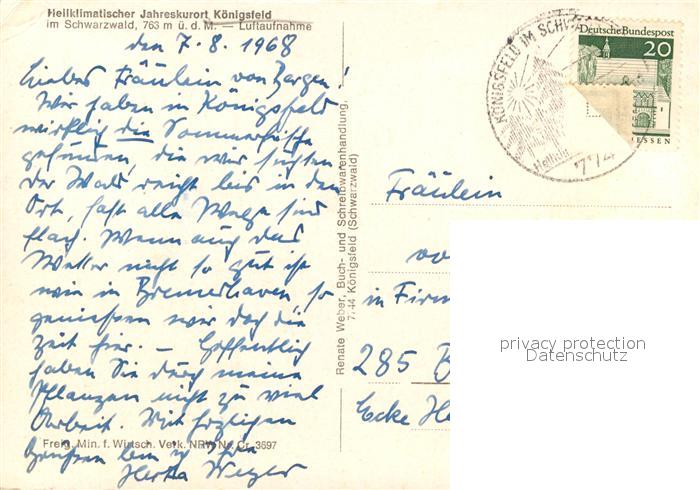 Heilklimatischer Jahreskurort Königsfeld
im Schwarzwald, 763 m ü. d. M. — Luftaufnahme
den 7. 8. 1968
Liebes Fräulein von Bargen!
Wir haben in Königsfeld
wirklich die Sommerfrische
gefunden, die wir suchten
der Wald reicht bis in den
Ort, fast alle Wege sind
flach. Wenn auch das
Wetter nicht so gut ist
wie in Bremerhaven, so
geniessen wir doch die
Zeit hier. — Hoffentlich
haben Sie durch meine
Pflanzen nicht zu viel
Arbeit. Mit herzlichen
Freig. Min. f. Wirtsch. Verk. NRW Nr. Cr. 3697
Grüssen bin ich Ihre
Herta
Renate Weber, Buch- und Schreibwarenhandlung,
7744 Königsfeld (Schwarzwald)
KÖNIGSFELD IM SCHW
Heilklim
774
Deutsche Bundespost
20
ESSEN
Fräulein
vo
in Firm
285 B
Ecke He
privacy protection
Datenschutz